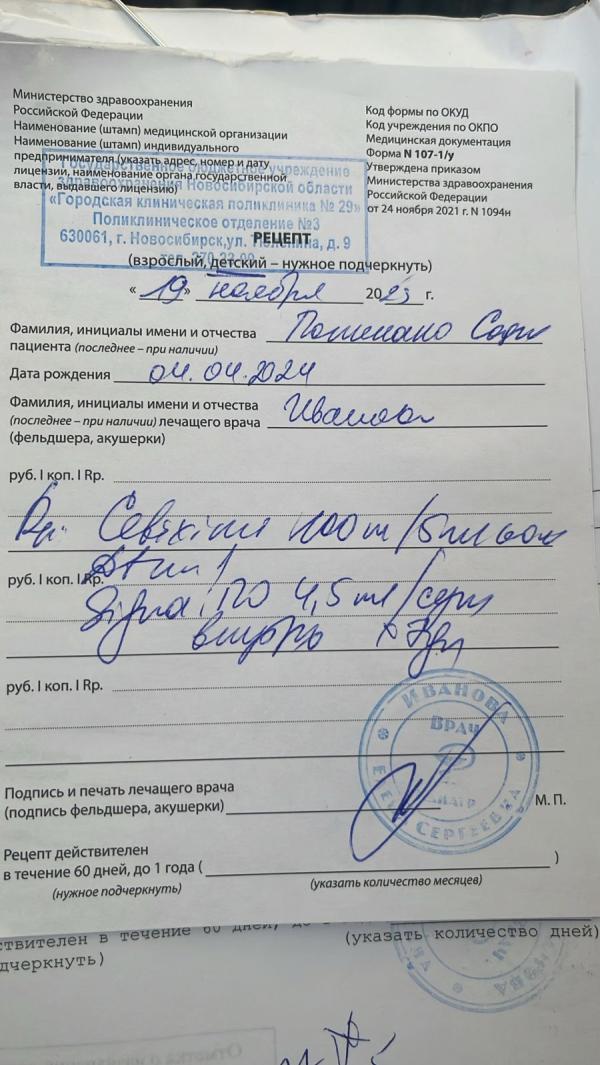 Министерство здравоохранения
Российской Федерации
Наименование (штамп) медицинской организации
Наименование (штамп) индивидуального
предпринимателя (указать адрес, номер и дату
лицензии, наименование органа государственной
власти, выдавшего лицензию)
Код формы по ОКУД
Код учреждения по ОКПО
Медицинская документация
Форма N 107-1/у
Утверждена приказом
Министерства здравоохранения
Российской Федерации
от 24 ноября 2021 г. N 1094н
Государственное бюджетное учреждение
здравоохранения Новосибирской области
«Городская клиническая поликлиника № 29»
Поликлиническое отделение №3
630061, г. Новосибирск, ул. д. 9
РЕЦЕПТ
(взрослый, детский – нужное подчеркнуть)
«19» ноября 2025 г.
Фамилия, инициалы имени и отчества
пациента (последнее – при наличии)
Дата рождения 04.04.2024
Фамилия, инициалы имени и отчества Иванова
(последнее – при наличии) лечащего врача
(фельдшера, акушерки)
руб. I коп. I Rp.
Rp: 100 /5мл
руб. I коп. I Rp.
Signa: по 4,5 ml/
внутрь
руб. I коп. I Rp.
ИВАНОВА
ВРАЧ
СЕРГЕЕВНА
Подпись и печать лечащего врача
(подпись фельдшера, акушерки)
М. П.
Рецепт действителен
в течение 60 дней, до 1 года ( )
(нужное подчеркнуть) (указать количество месяцев)
ствителен в течение 60 дней, до
(указать количество дней)
дчеркнуть)